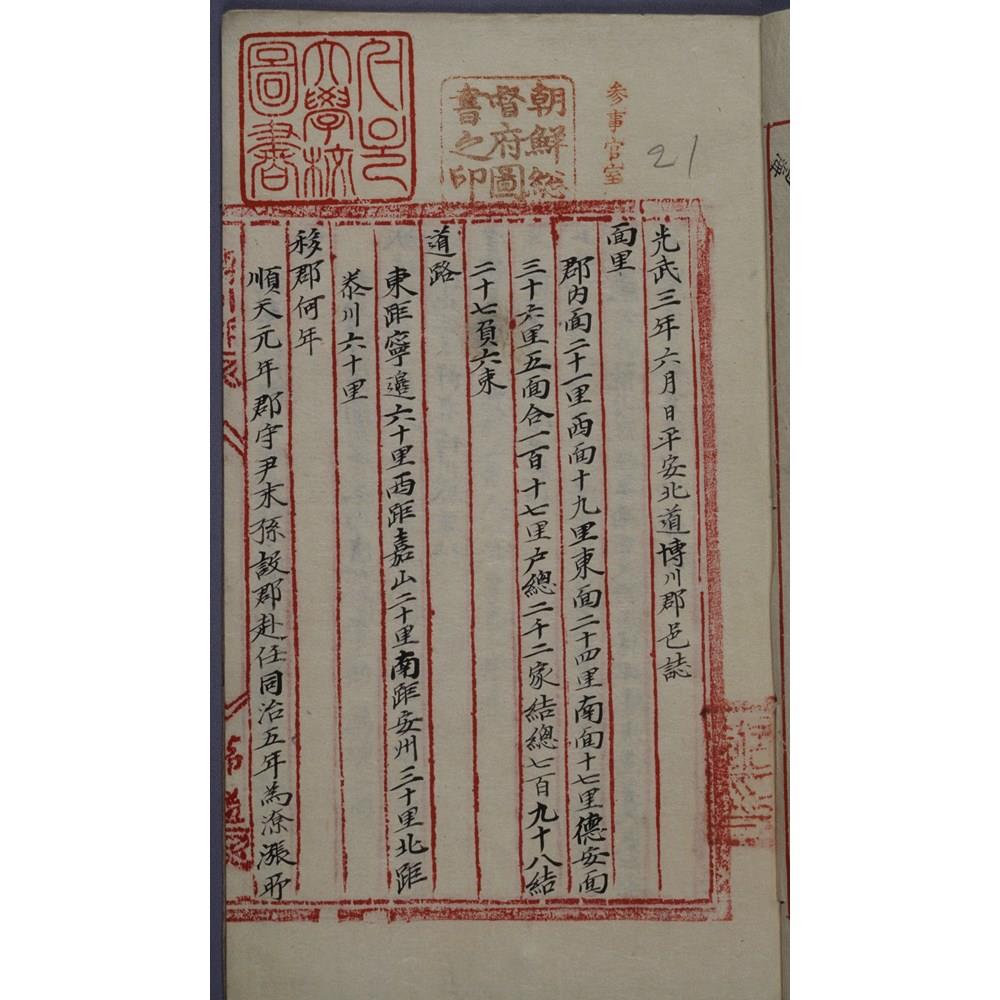 参事官室
21
朝鮮總
督府圖
書之印
서울
大學校
圖書
光武三年六月日平安北道博川郡邑誌
面里
郡內面二十一里西面十九里東面二十四里南面十七里德安面
三十六里五面合一百十七里戶總二千二家結總七百九十八結
二十七負六束
道路
東距寧邊六十里西距嘉山二十里南距安州三十里北距
泰川六十里
移郡何年
順天元年郡守尹末孫設郡赴任同治五年為潦漲所